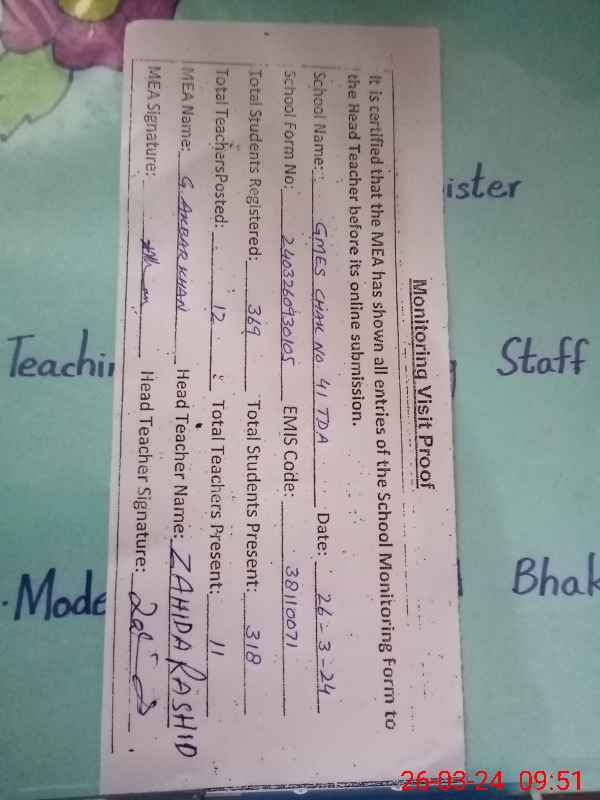 Monitoring Visit Proof
It is certified that the MEA has shown all entries of the School Monitoring Form to
the Head Teacher before its online submission.
School Name: GMES CHAK NO 41 TDA Date: 26-3-24
School Form No: 2403260930105 EMIS Code: 38110071
Total Students Registered: 369 Total Students Present: 318
Total TeachersPosted: 12 Total Teachers Present: 11
MEA Name: G. AKBAR KHAN Head Teacher Name: ZAHIDA RASHID
MEA Signature: Head Teacher Signature:
ister
Teachi
Staff
Mode
Bhak
26-03-24 09:51